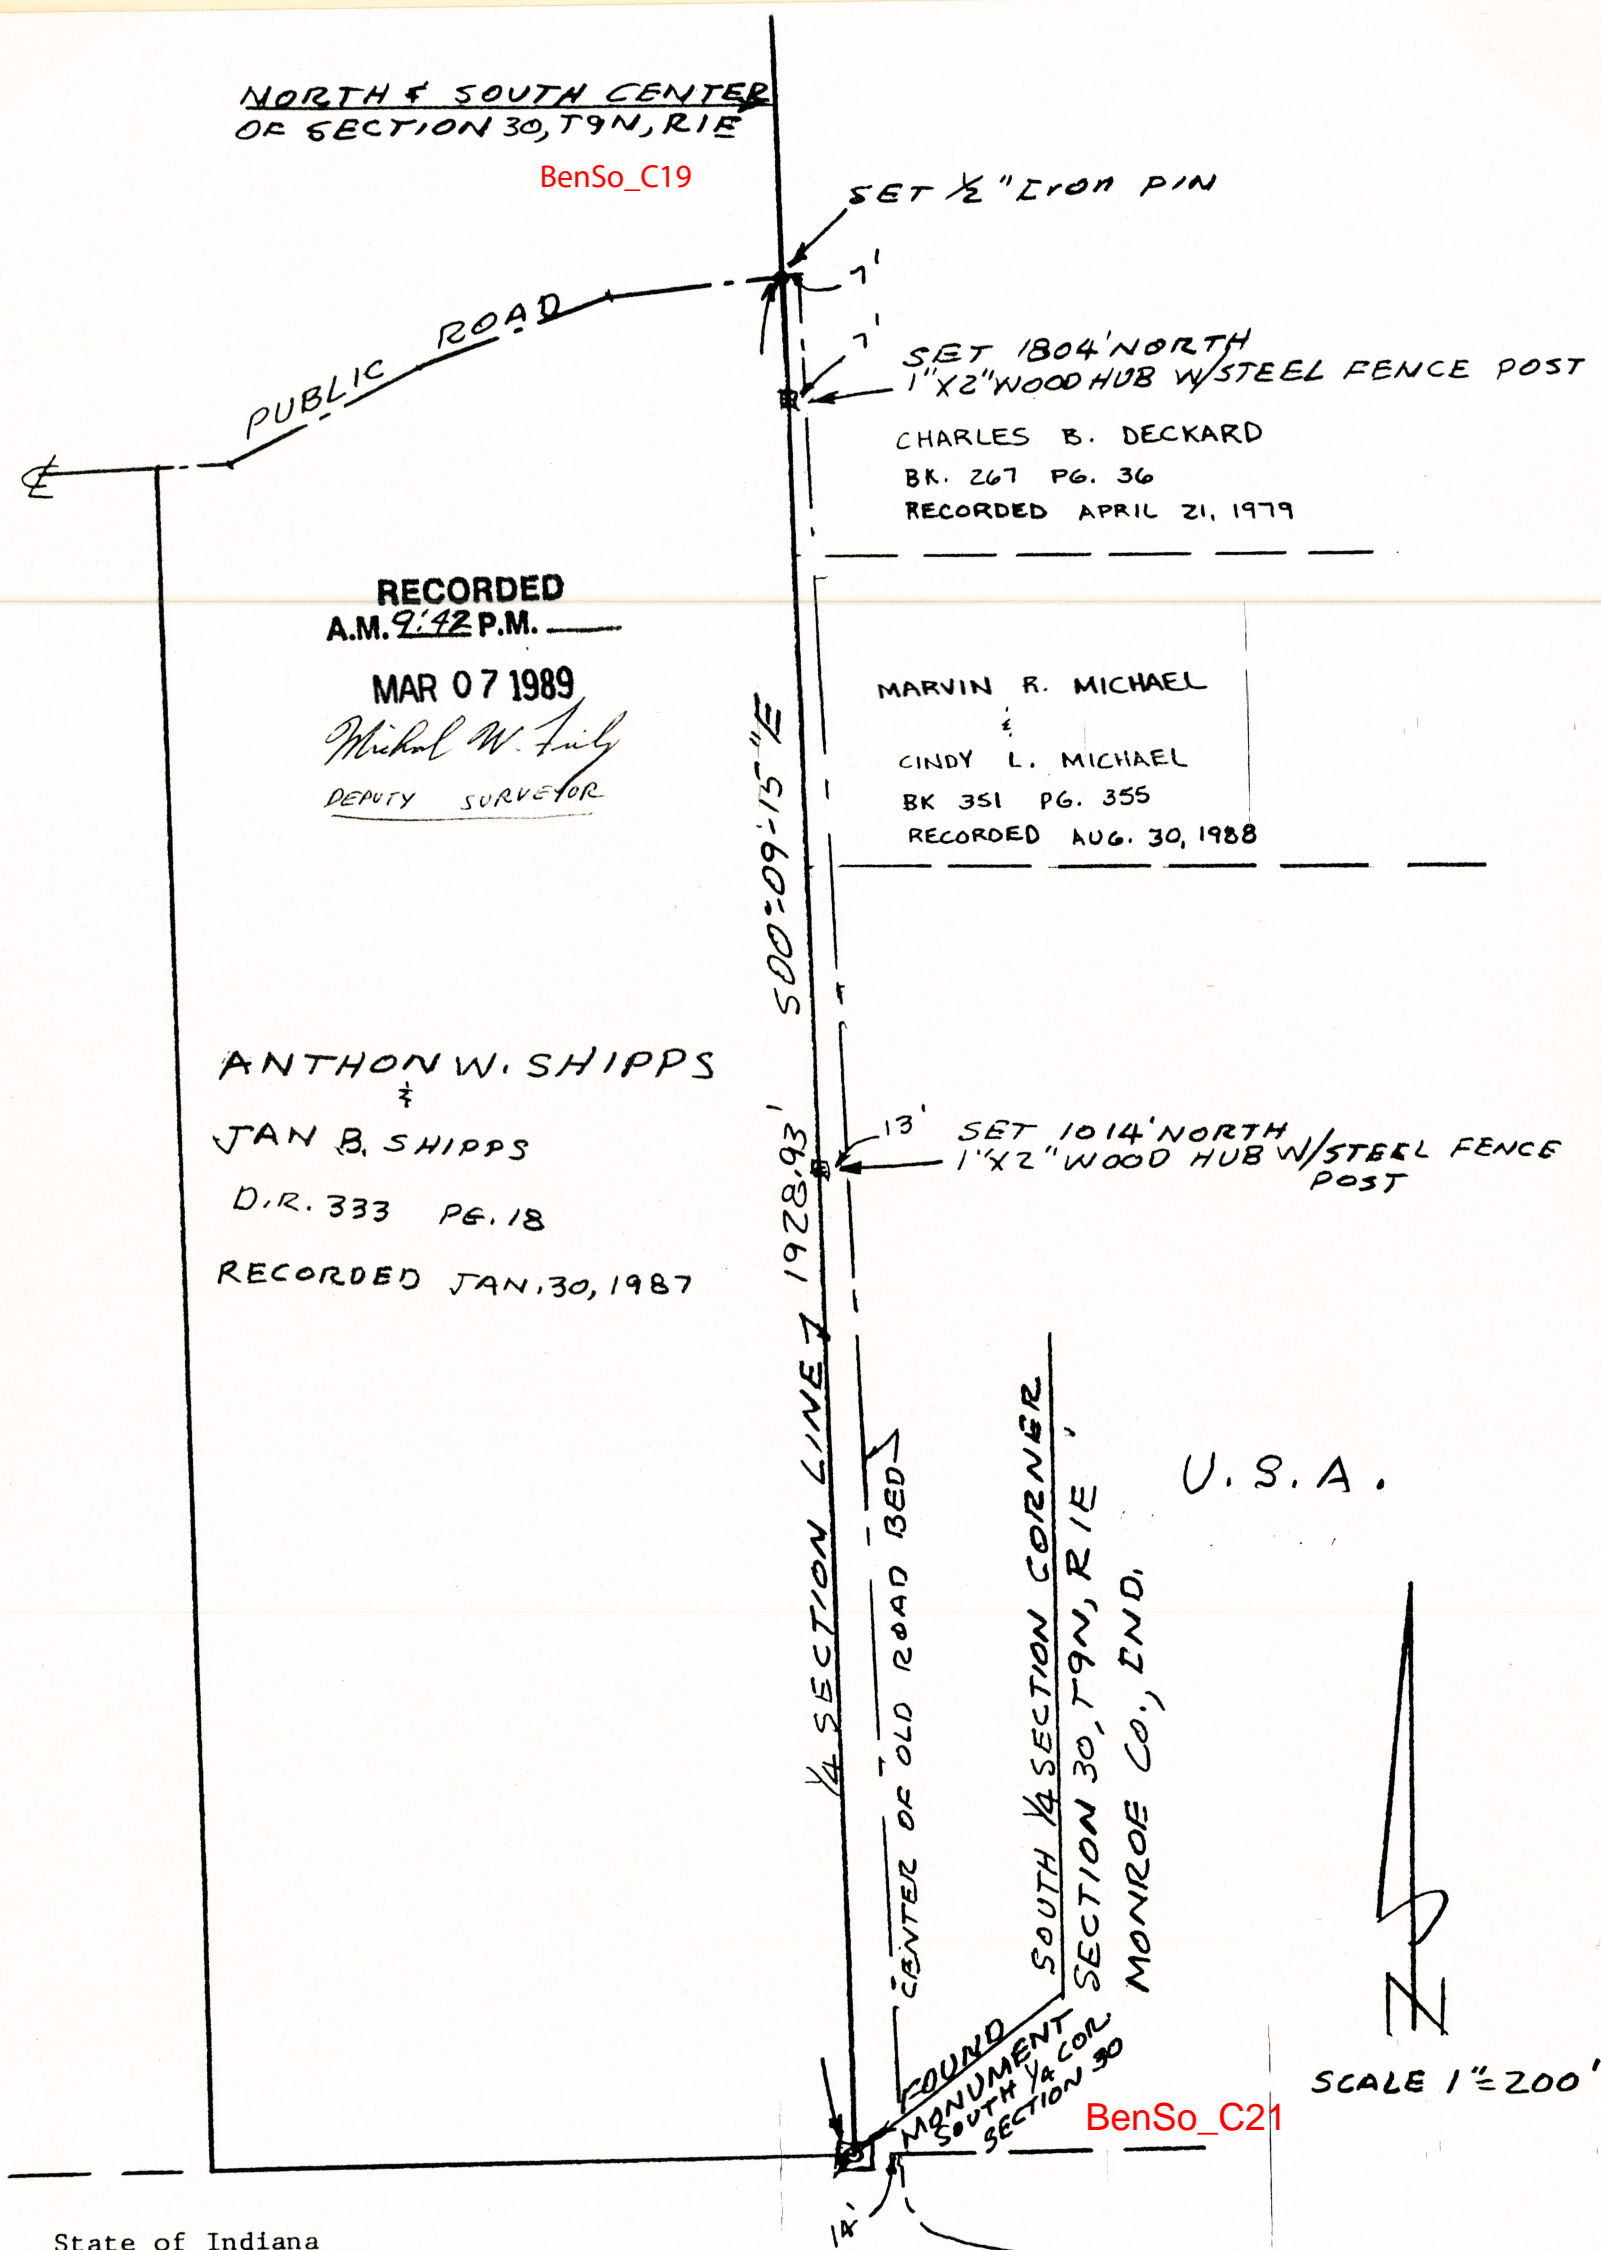 NORTH & SOUTH CENTER
OF SECTION 30, T9N, R1E
BenSo_C19
SET 1/2" Iron PIN
7'
7'
PUBLIC ROAD
SET 1804' NORTH
1"X2" WOOD HUB W/STEEL FENCE POST
CHARLES B. DECKARD
BK. 267 PG. 36
RECORDED APRIL 21, 1979
℄
RECORDED
A.M. 9:42 P.M.
MAR 07 1989
Michael W.
DEPUTY SURVEYOR
MARVIN R. MICHAEL
&
CINDY L. MICHAEL
BK 351 PG. 355
RECORDED AUG. 30, 1988
1/4 SECTION LINE 1928.93' S00°-09'-15"E
ANTHON W. SHIPPS
&
JAN B. SHIPPS
D.R. 333 PG. 18
RECORDED JAN. 30, 1987
13'
SET 1014' NORTH
1"X2" WOOD HUB W/STEEL FENCE
POST
CENTER OF OLD ROAD BED
SOUTH 1/4 SECTION CORNER
SECTION 30, T9N, R1E
MONROE CO., IND.
U.S.A.
N
SCALE 1"=200'
FOUND
MONUMENT
SOUTH 1/4 COR.
SECTION 30
BenSo_C21
State of Indiana